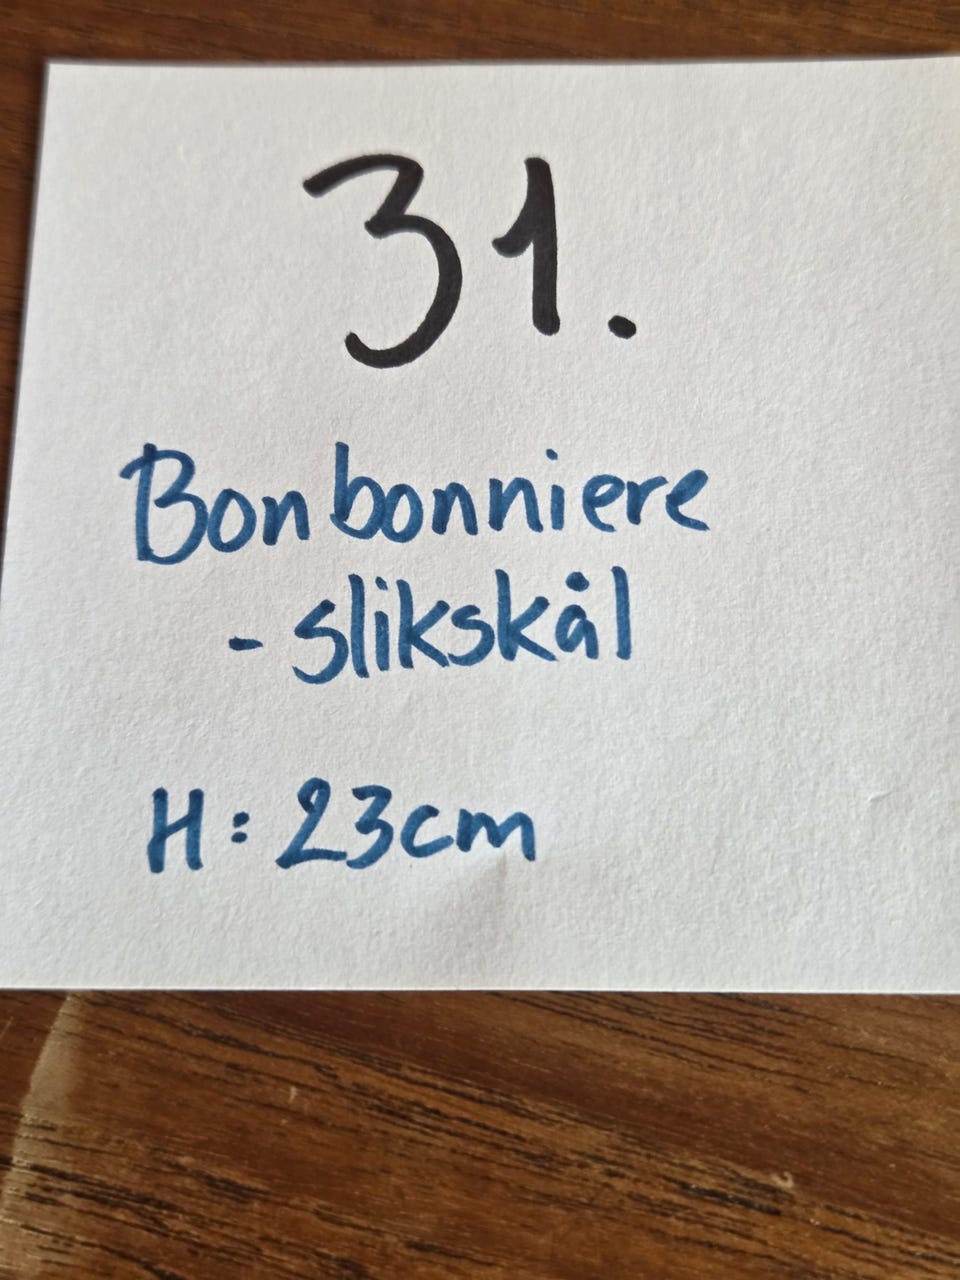 31.
Bonbonniere
- slikskål
H: 23cm